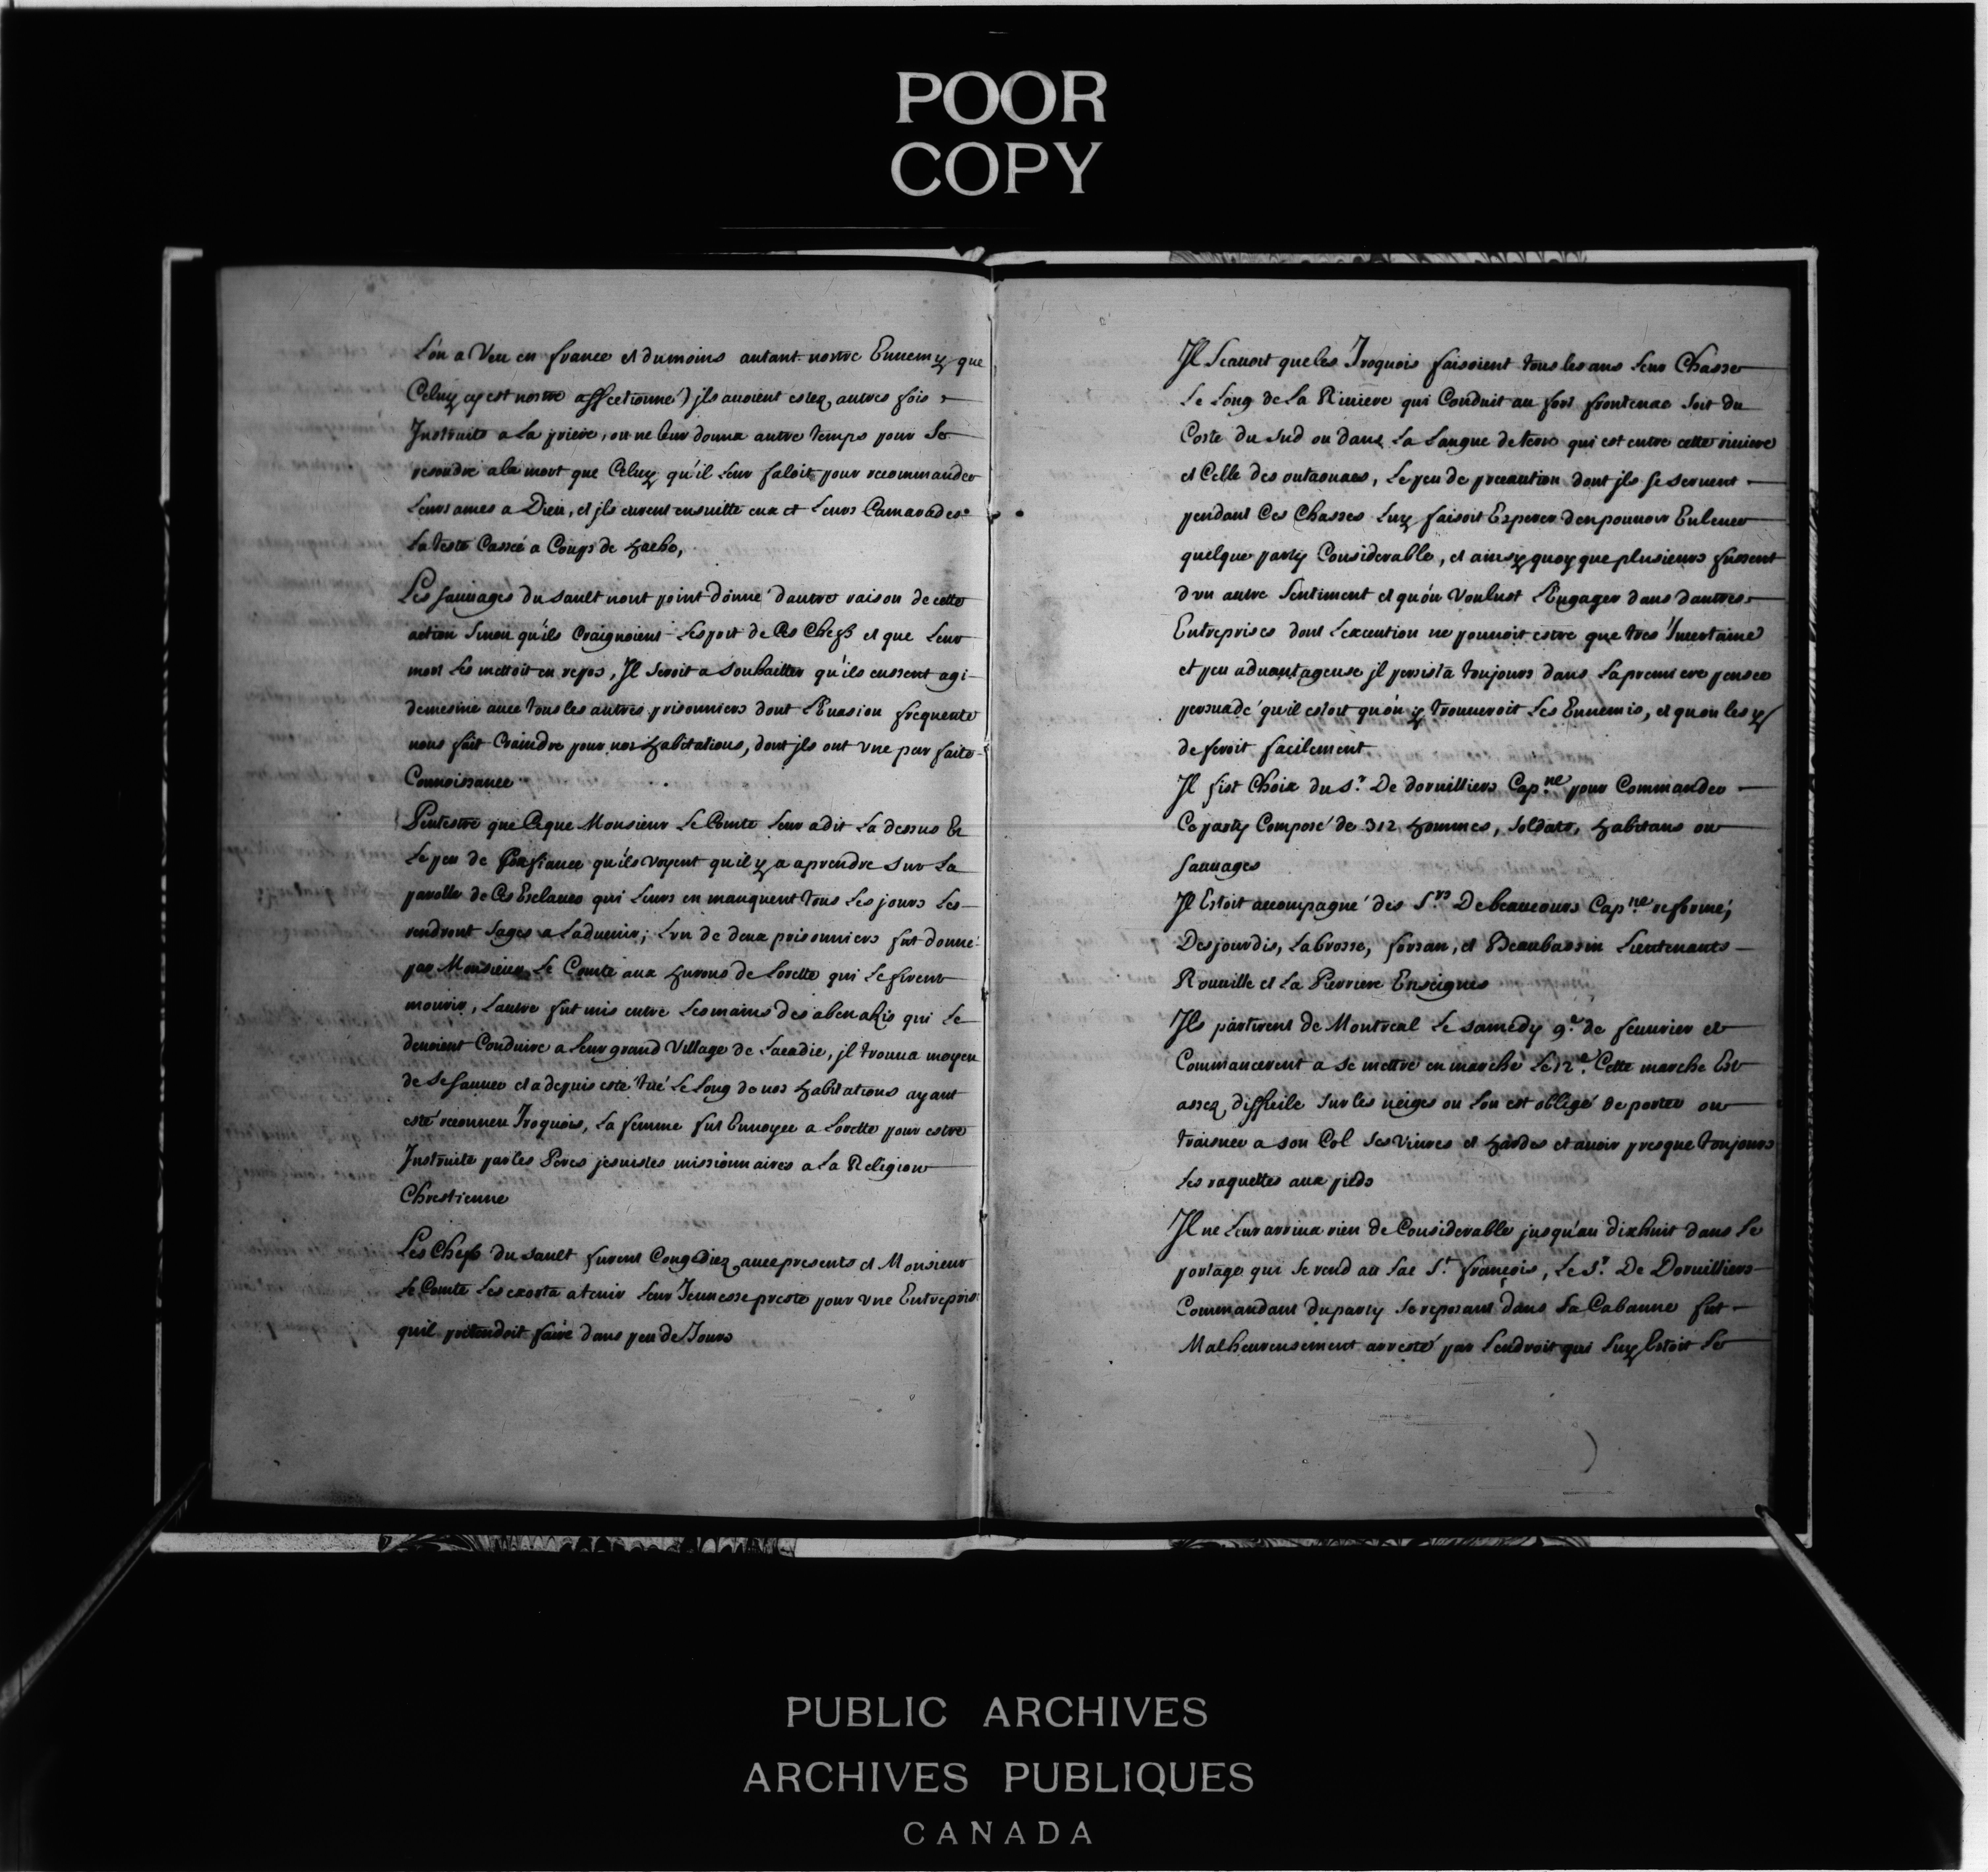 POOR
COPY
L'on a Veu en france et du moins autant nostre Ennemy que
Celuy cy est nostre affectionné) jls auoient estez autres fois
Jnstruits a La priere, on ne leur donna autre temps pour Se
resoudre a la mort que Celuy qu'il Leur faloit pour recommander
Leurs ames a Dieu, et jls eurent ensuitte eux et Leurs Camarades
La teste Cassée a Coups de hache,
Les sauuages du Sault n'ont point donné d'autre raison de cette
action Sinon qu'ils Craignoient Lesprit de Ces Chefs et que Leur
mort Les mettoit en repos, Jl Seroit a Souhaitter qu'ils eussent agi
de mesme auec tous les autres prisonniers dont L'Euasion frequente
nous fait Craindre pour nos habitations, dont jls ont vne parfaite
Connoissance
Peutestre que Ce que Monsieur Le Comte Leur a dit La dessus Et
Le peu de Confiance qu'ils voyent qu'il y a a prendre sur La
parolle de Ces Esclaues qui Leurs en manquent tous Les jours Les
rendront Sages a L'aduenir; L'vn de deux prisonniers fut donné
par Monsieur Le Comte aux hurons de Lorette qui Le firent
mourir, L'autre fut mis entre Les mains des abenakis qui Le
deuoient Conduire a Leur grand Village de Lacadie, jl trouua moyen
de Se Sauuer et a depuis esté tué Le Long de nos habitations ayant
esté reconneu Jroquois, La femme fut Enuoyée a Lorette pour estre
Jnstruite par les Peres jesuistes missionnaires a La Religion
Chrestienne
Les Chefs du Sault furent Congediez auec presents et Monsieur
Le Comte Les exorta a tenir Leur Jeunesse preste pour vne Entreprise
qu'il pretendoit faire dans peu de Jours
Jl Scauoit que les Jroquois faisoient tous les ans Leur Chasse
Le Long de La Riuiere qui Conduit au fort frontenac soit du
Coste du Sud ou dans La Langue de terre qui est entre cette riuiere
et Celle des outaouacs, Le peu de precaution dont jls se seruent
pendant Ces Chasses Luy faisoit Esperer d'en pouuoir Enleuer
quelque party Considerable, et ainsy quoy que plusieurs fussent
d'vn autre Sentiment et qu'on Voulust L'Engager dans d'autres
Entreprises dont L'execution ne pouuoit estre que tres Jncertaine
et peu aduantageuse jl persista toujours dans La premiere pensée
persuadé qu'il estoit qu'on y trouueroit Les Ennemis, et qu'on les y
deferoit facilement
Jl fist Choix du Sr. De doruilliers Capne. pour Commander
Ce party Composé de 312 hommes, Soldats, habitans ou
Sauuages
Jl Estoit accompagné des Srs De beaucours Capne. reformé,
Desjourdis, Labrosse, forsan, et Beaubassin Lieutenants
Rouuille et La Pierriere Enseignes
Jls partirent de Montreal Le samedy 9e. de feuurier et
Commancerent a se mettre en marche Le 12e. Cette marche Est
assez difficile sur les neiges ou L'on est obligé de porter ou
traisner a son Col Ses Viures et hardes et auoir presque toujours
Les raquettes aux pieds
Jl ne Leur arriua rien de Considerable jusqu'au dixhuit dans Le
portage qui Se rend au Lac St. françois, Le Sr. De Doruilliers
Commandant du party Se reposant dans Sa Cabanne fut
Malheureusement arresté par L'endroit qui Luy Estoit Le
PUBLIC ARCHIVES
ARCHIVES PUBLIQUES
CANADA